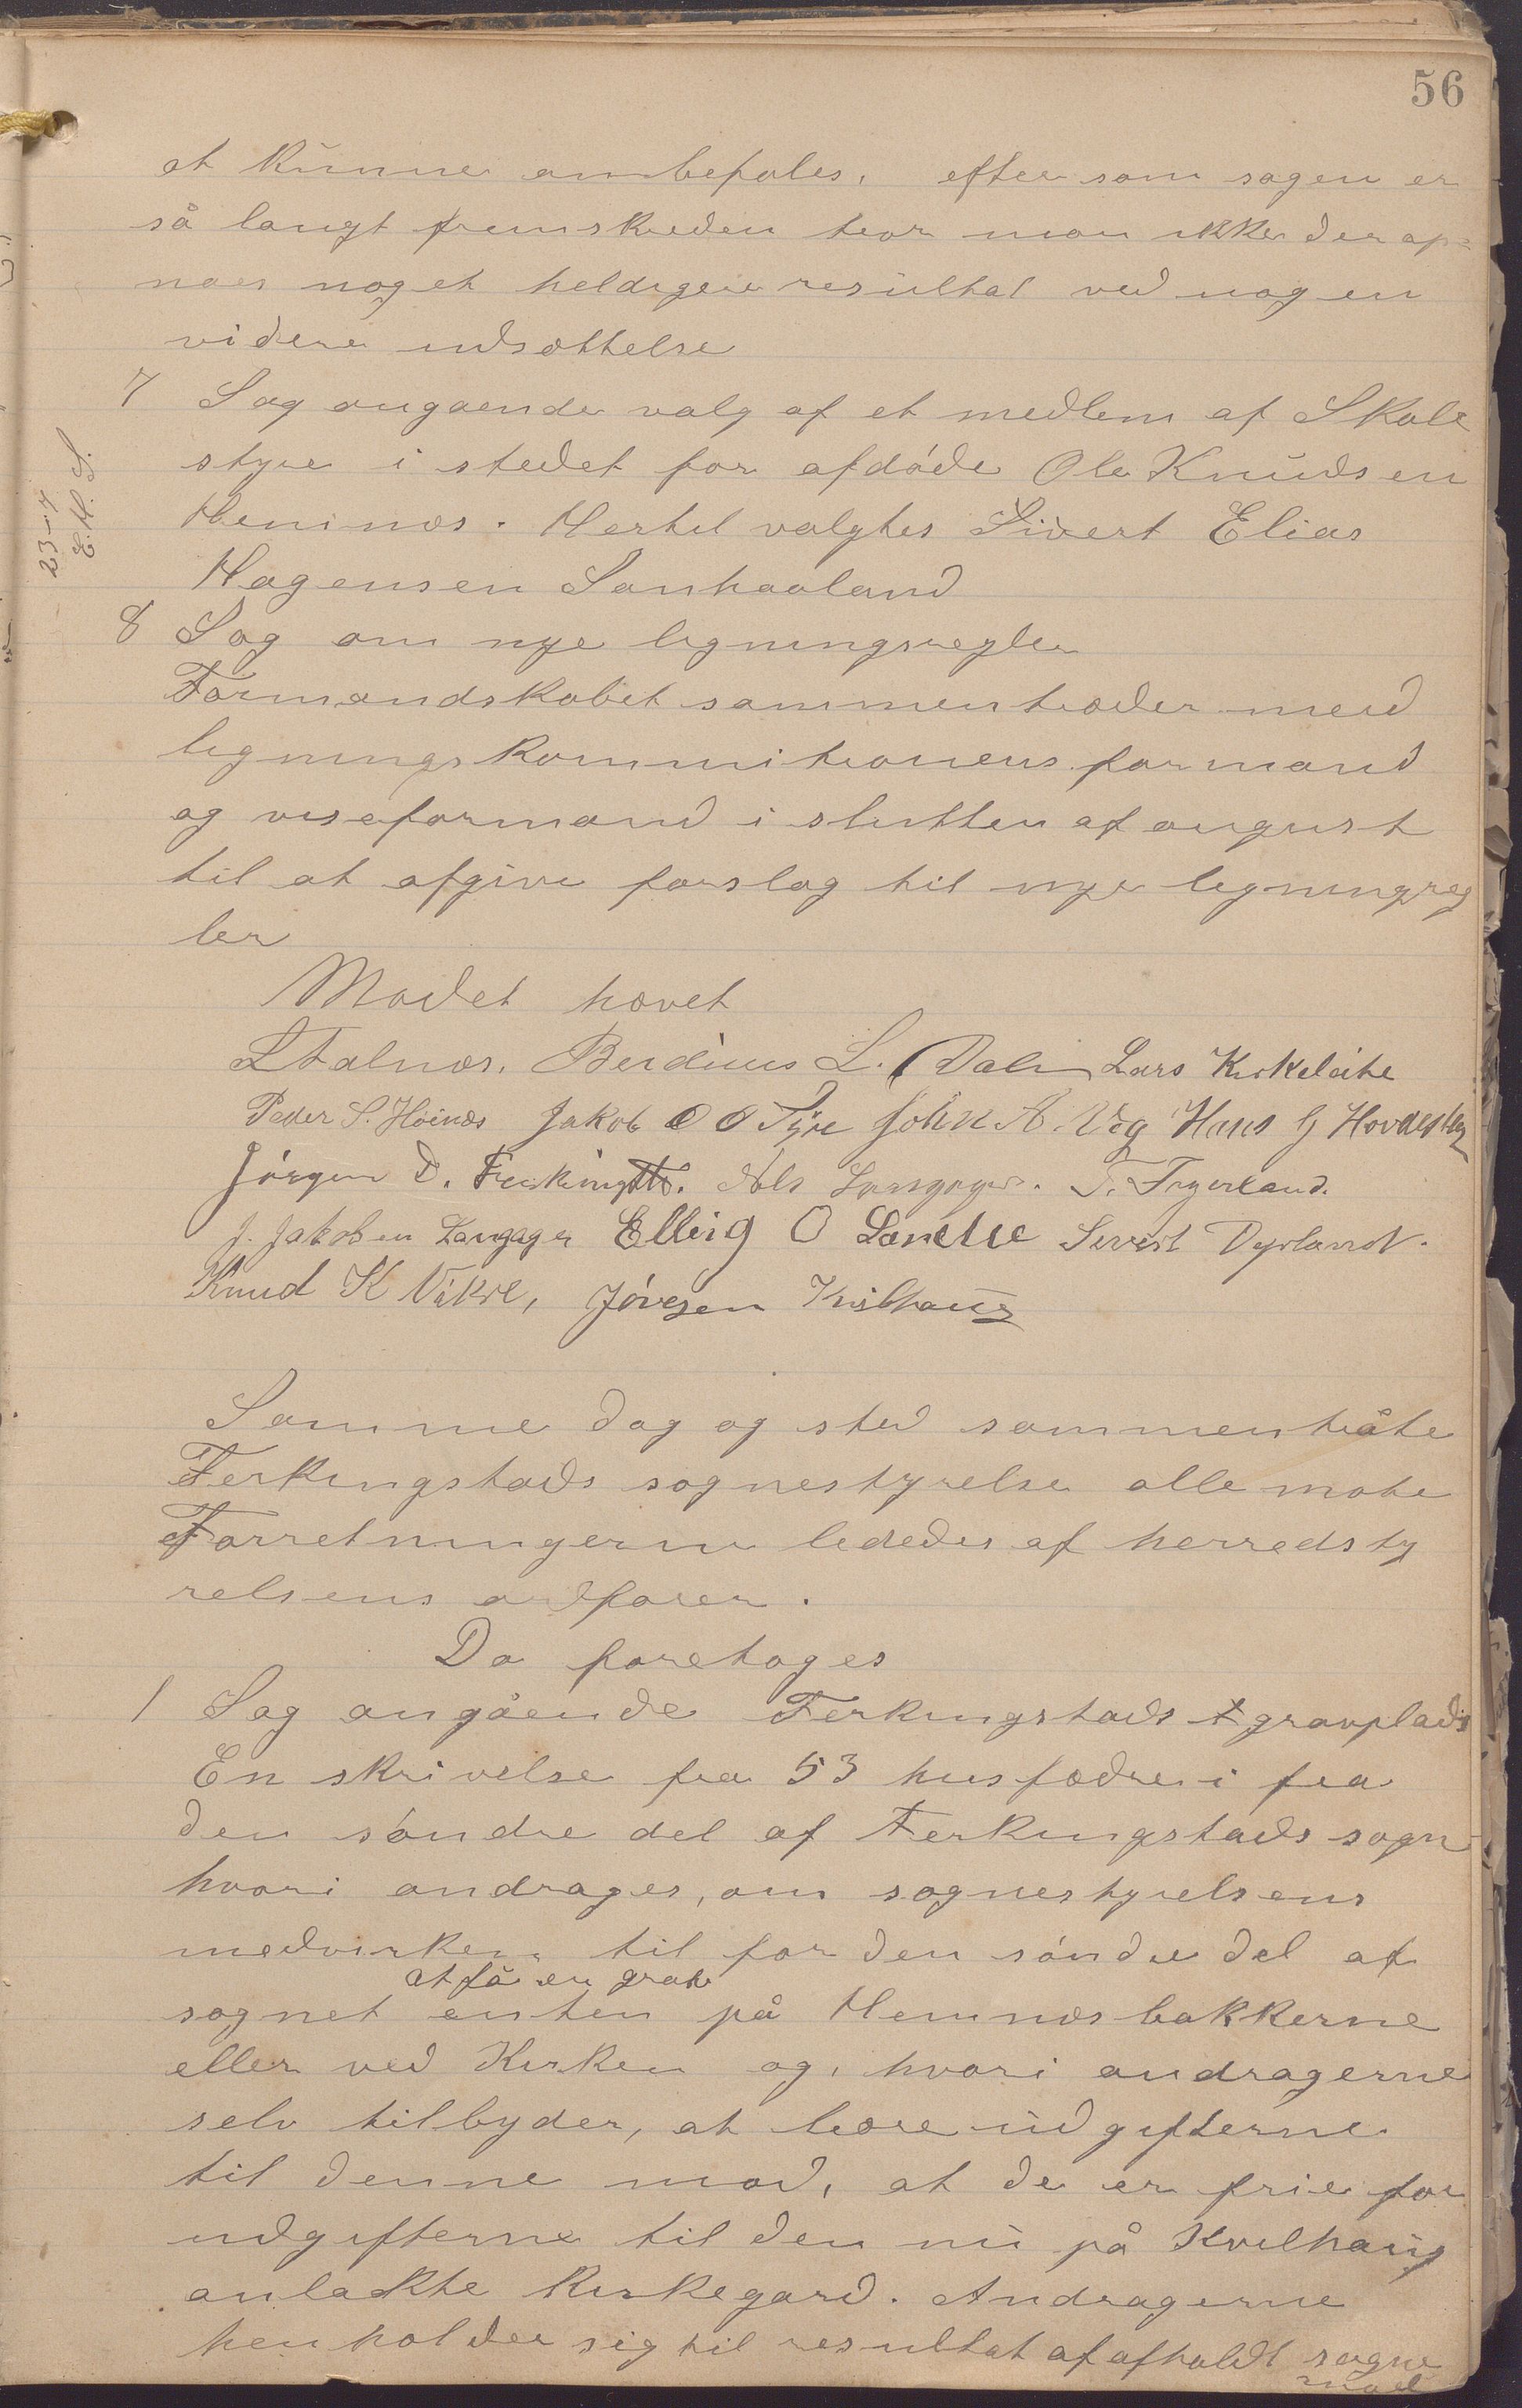 56
at kunne anbefales, efter som sagen er
så langt fremskreden tror man ikke der op-
naaes noget heldigere resultat ved nogen
videre udsættelse
7 Sag angaaende valg af et medlem af Skole
styre i stedet for afdöde Ole Knudsen
23-7
E. H. S.
Heninæs. Hertil valgtes Sivert Elias
Hagensen Sanhaaland
8 Sag om nye ligningsregler
Formandskabet sammentræder med
ligningskommitionens formand
og viseformand i slutten af august
til at afgive forslag til nye ligningreg
ler
Mødet hævet
L Falnæs. Berdines L. Dale Lars Kirkeleite
Peder S. Höinæs Jakob O O Tjöe John A. Våg Hans G Hovdesten
Jörgen D. Ferkingst. Nils Langager. T. Fagerland.
J. Jakobsen Langager Elling O Sandve Sivert Dyrland.
Knud K Vikre, Jörgen Kvilhaug
Samme dag og sted sammentråte
Ferkingstads sognestyrelse alle møtte
Forretningerne lededes af herredsty
relsens ordfører.
Da foretoges
1 Sag angående Ferkingstads gravplads
En skrivelse fra 53 husfædre i fra
den söndre del af Ferkingstads sogn
hvori andrages, om sognestyrelsens
medvirken til for den söndre del af
at få en grav
sognet enten på Hemnæsbakkerne
eller ved Kirken og, hvori andragerne
selv tilbyder, at bære udgifterne
til denne mod, at de er frie for
udgifterne til den nu på Kvilhaug
anlackte Kirkegard. Andragerne
henholder sig til resultat af afholdt sogne
mød